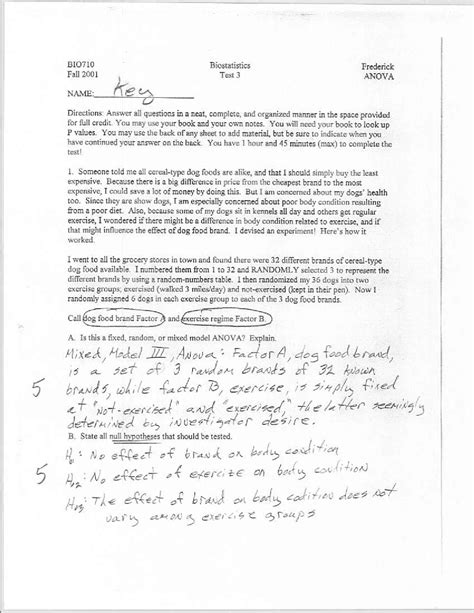 BIO710 Biostatistics Frederick
Fall 2001 Test 3 ANOVA
NAME: Key
Directions: Answer all questions in a neat, complete, and organized manner in the space provided
for full credit. You may use your book and your own notes. You will need your book to look up
P values. You may use the back of any sheet to add material, but be sure to indicate when you
have continued your answer on the back. You have 1 hour and 45 minutes (max) to complete the
test!
1. Someone told me all cereal-type dog foods are alike, and that I should simply buy the least
expensive. Because there is a big difference in price from the cheapest brand to the most
expensive, I could save a lot of money by doing this. But I am concerned about my dogs' health
too. Since they are show dogs, I am especially concerned about poor body condition resulting
from a poor diet. Also, because some of my dogs sit in kennels all day and others get regular
exercise, I wondered if there might be a difference in body condition related to exercise, and if
that might influence the effect of dog food brand. I devised an experiment! Here's how it
worked.
I went to all the grocery stores in town and found there were 32 different brands of cereal-type
dog food available. I numbered them from 1 to 32 and RANDOMLY selected 3 to represent the
different brands by using a random-numbers table. I then randomized my 36 dogs into two
exercise groups; exercised (walked 3 miles/day) and not-exercised (kept in their pen). Now I
randomly assigned 6 dogs in each exercise group to each of the 3 dog food brands.
Call dog food brand Factor A and exercise regime Factor B.
A. Is this a fixed, random, or mixed model ANOVA? Explain.
Mixed, Model III, Anova: Factor A, dog food brand,
is a set of 3 random brands of 32 known
5 brands, while factor B, exercise, is simply fixed
at "not-exercised" and "exercised," the latter seemingly
determined by investigator desire.
B. State all null hypotheses that should be tested.
H₀₁: No effect of brand on body condition
5 H₀₂: No effect of exercize on body condition
H₀₃: The effect of brand on body codition does not
vary among exercise groups